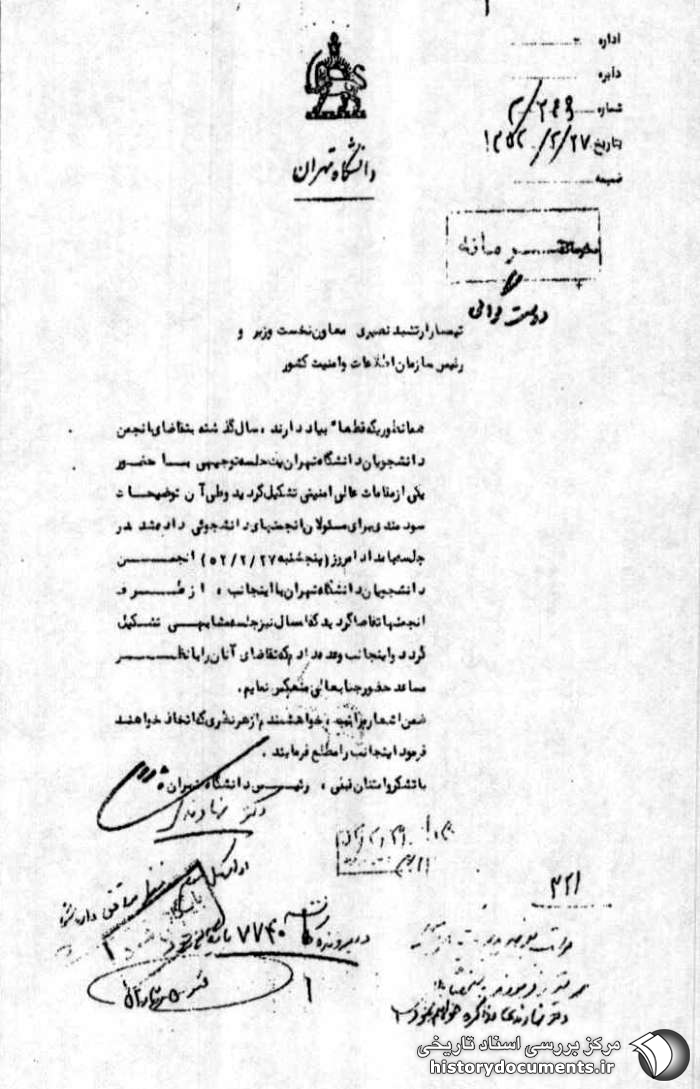 اداره
دایره
شماره
تاریخ ۱۳۵۲/۲/۲۷
ضمیمه
دانشگاه تهران
محرمانه
دوست گرامی
تیمسار ارتشبد نصیری معاون نخست وزیر و
رئیس سازمان اطلاعات و امنیت کشور
همانطوریکه قطعا" بیاد دارند ، سال گذشته بتقاضای انجمن
دانشجویان دانشگاه تهران یک جلسه توجیهی با حضور
یکی از مقامات عالی امنیتی تشکیل گردید و طی آن توضیحات
سودمندی برای مسئولان انجمنهای دانشجوئی داده شد در
جلسه بامداد امروز (پنجشنبه ۵۲/۲/۲۷) انجمن
دانشجویان دانشگاه تهران با اینجانب ، از طرف
انجمنها تقاضا گردید که امسال نیز جلسه مشابهی تشکیل
گردد و اینجانب وعده دادم که تقاضای آنان را با نظر
مساعد حضور جنابعالی منعکس نمایم .
ضمن اشعار مراتب ، خواهشمندم از هر نظری که اتخاذ خواهند
فرمود اینجانب را مطلع فرمایند .
با تشکر و امتنان قبلی ، رئیس دانشگاه تهران
دکتر نهاوندی
۳۲۱
در پرونده ۷۷۴۰
مرکز بررسی اسناد تاریخی
historydocuments.ir